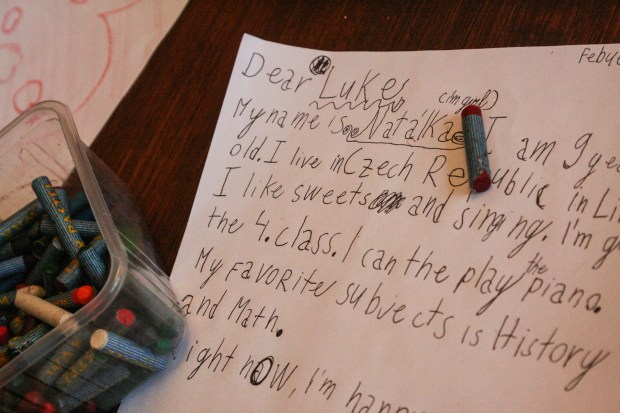 Febu
Dear Luke,
(Im girl)
My name is Natálka I am 9 yea
old. I live in Czech Republic in Li
I like sweets and singing. I'm g
the 4. class. I can the play the piano.
My FAVORITE subjects is History
and Math.
ight now, I'm happ